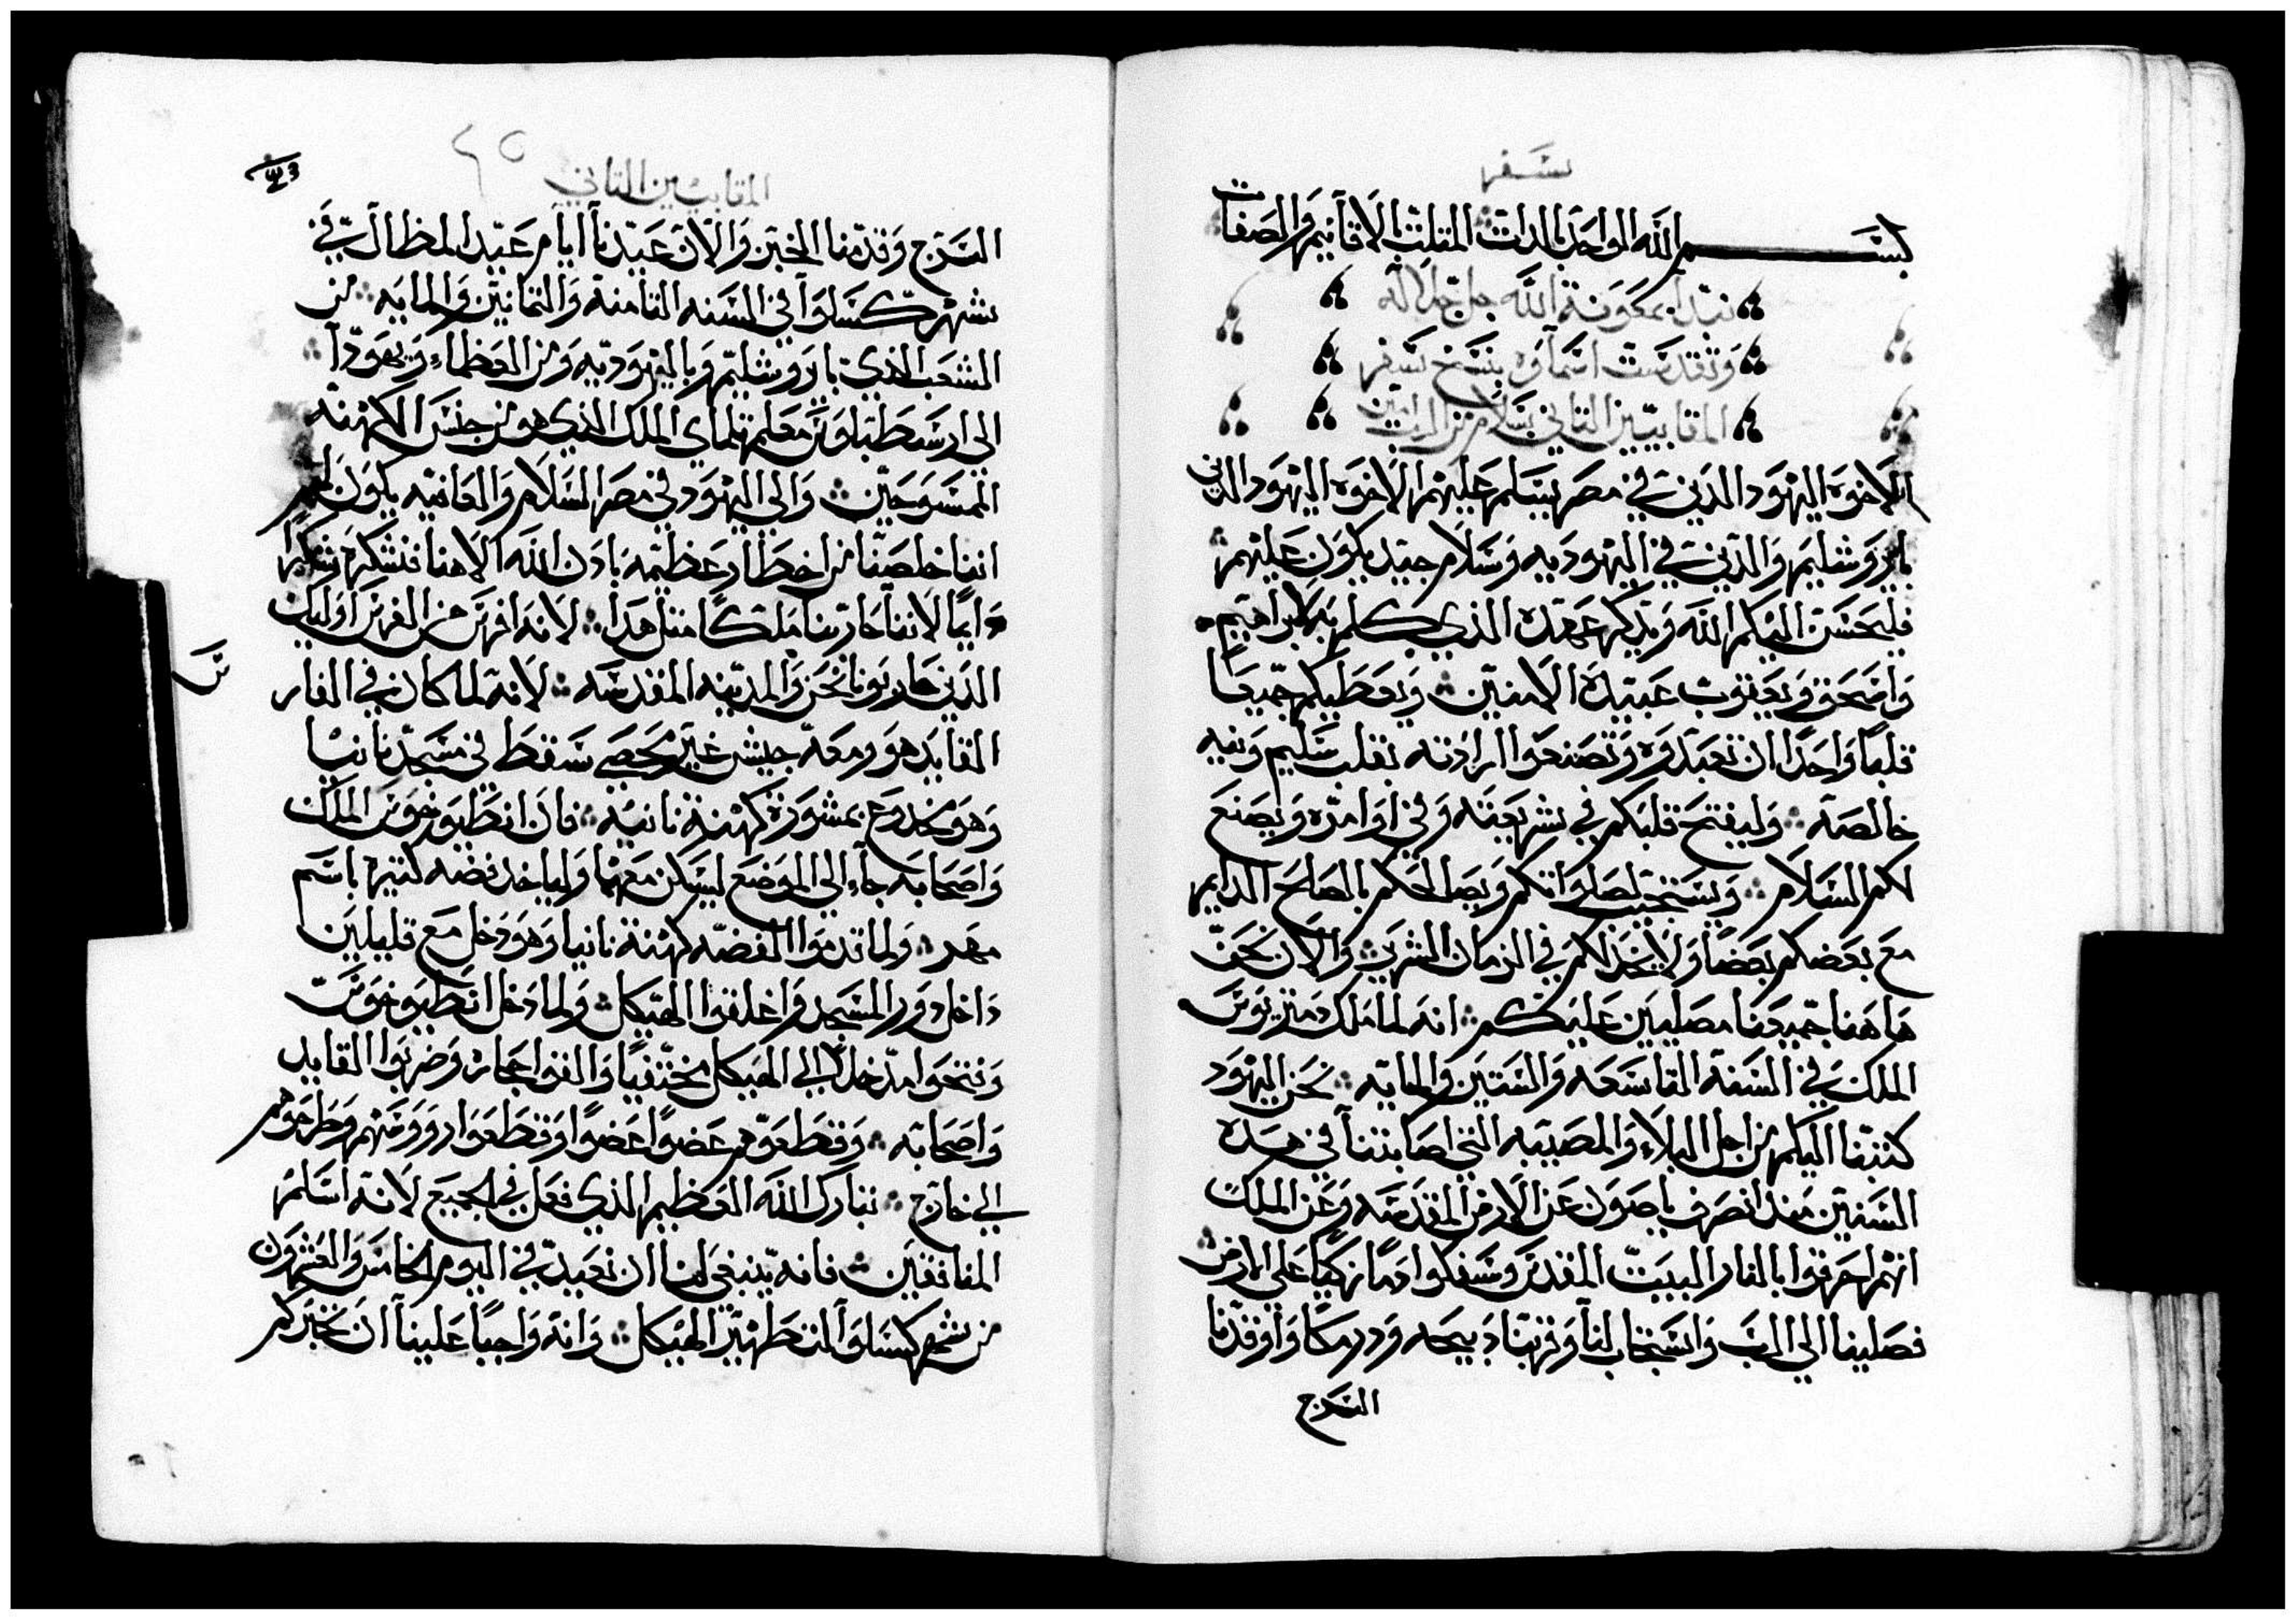 سفر
بسم الله الواحد بالدات المتلت بالاقانيم والصفات
نبتدا بمعونة الله جل جلاله
وتقدست اسماوه بنسخ سفر
المقابيين التاني بسلام من الرب امين
الاخوه اليهود الدين في مصر يسلم عليهم الاخوه اليهود الدين
باروشليم والدين في اليهوديه وسلام جيد يكون عليهم
فليحسن اليكم الله ويدكر عهده الدي كلم به لابراهيم
واسحق ويعقوب عبيده الامنين ويعطيكم جميعا
قلبا واحدا ان تعبدوه وتصنعوا ارادته بقلب سليم ونيه
خالصه وليفتح قلبكم في شريعته وفي اوامره ويصنع
لكم السلام ويستجيب لصلواتكم ويصالحكم بالصلح الدايم
مع بعضكم بعضا ولا يخدلكم في الزمان الشرير والان نحن
هاهنا جميعنا مصليين عليكم انه لما ملك دمتريوس
الملك في السنة التاسعه والستين والمايه نحن اليهود
كتبنا اليكم من اجل البلاء والمصيبه التي اصابتنا في هده
السنين مند انصرف ياصون عن الارض المقدسه وعن الملك
انهم احرقوا بالنار البيت المقدس وسفكوا دما زكيا على الارض
فصلينا الي الرب واستجاب لنا وقربنا دبيحه ودرمكا واوقدنا
السرج
المقابيين التاني
٢٥
السرج وقدمنا الخبز والان عيدنا ايام عيد المظال في
شهر كسلوا في السنه التامنة والتمانين والمايه من
الشعب الدي باروشليم وباليهوديه ومن العظماء ويهودا
الى ارسطبلوس معلم تلماي الملك الدي هو من جنس الكهنه
الممسوحين والي اليهود في مصر السلام والعافيه يكون لهم
اننا خلصنا من اخطار عظيمه بادن الله الاهنا فنشكره شكرا
دايما لاننا حاربنا ملكا مثل هدا لانه افرس من الفرس اوليك
الدين حاربونا نحن والمدينه المقدسه لانه لما كان في الفارس
القايد هو ومعه جيش غير محصي سقط في مسجد نانيا
وهو مخدوع بمشورة كهنة نانيه فان انطيوخوس الملك
واصحابه جاء الي الموضع ليسكن معها ولياخد فضه كتيره باسم
مهر ولما قدموا الفضه كهنة نانيا وهو دخل مع قليلين
داخل دور المسجد واغلقوا الهيكل ولما دخل انطيوخوس
وفتحوا مدخلا الي الهيكل مختفيا والقوا حجاره وضربوا القايد
واصحابه وقطعوهم عضوا عضوا وقطعوا رووسهم وطرحوهم
الي خارج تبارك الله العظيم الدي فعل في الجميع لانه اسلم
المنافقين فانه ينبغي لنا ان نعيد في اليوم الخامس والعشرون
من شهر كسلوا لتطهير الهيكل وانه واجبا علينا ان نخبركم